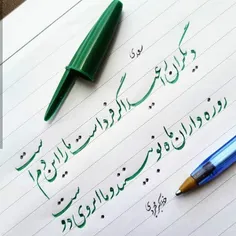 سعدی
دیگران را عید اگر فرداست ما را این دم است
روزه داران ماه نو بینند و ما ابروی دوست